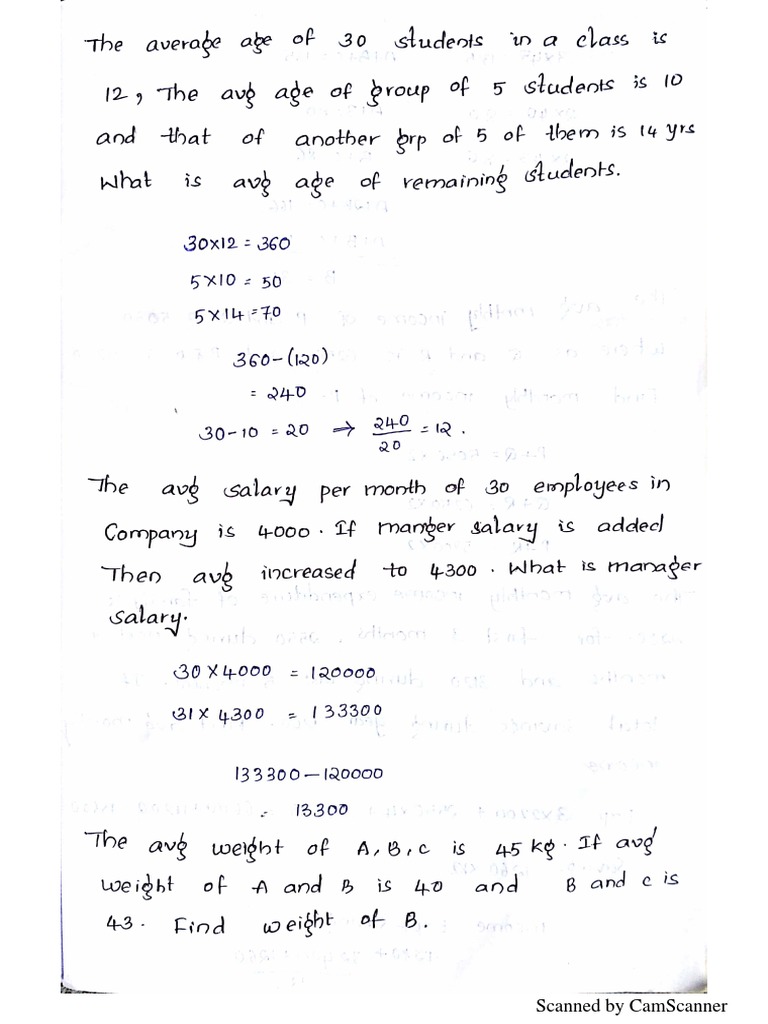 The average age of 30 students in a class is
12, The avg age of group of 5 students is 10
and that of another grp of 5 of them is 14 yrs
What is avg age of remaining students.
30×12 = 360
5×10 = 50
5×14 = 70
360-(120)
= 240
30-10 = 20 ⇒ 240/20 = 12.
The avg salary per month of 30 employees in
Company is 4000. If manger salary is added
Then avg increased to 4300. What is manager
salary.
30×4000 = 120000
31×4300 = 133300
133300-120000
= 13300
The avg weight of A, B, C is 45 kg. If avg
weight of A and B is 40 and B and C is
43. Find weight of B.
Scanned by CamScanner